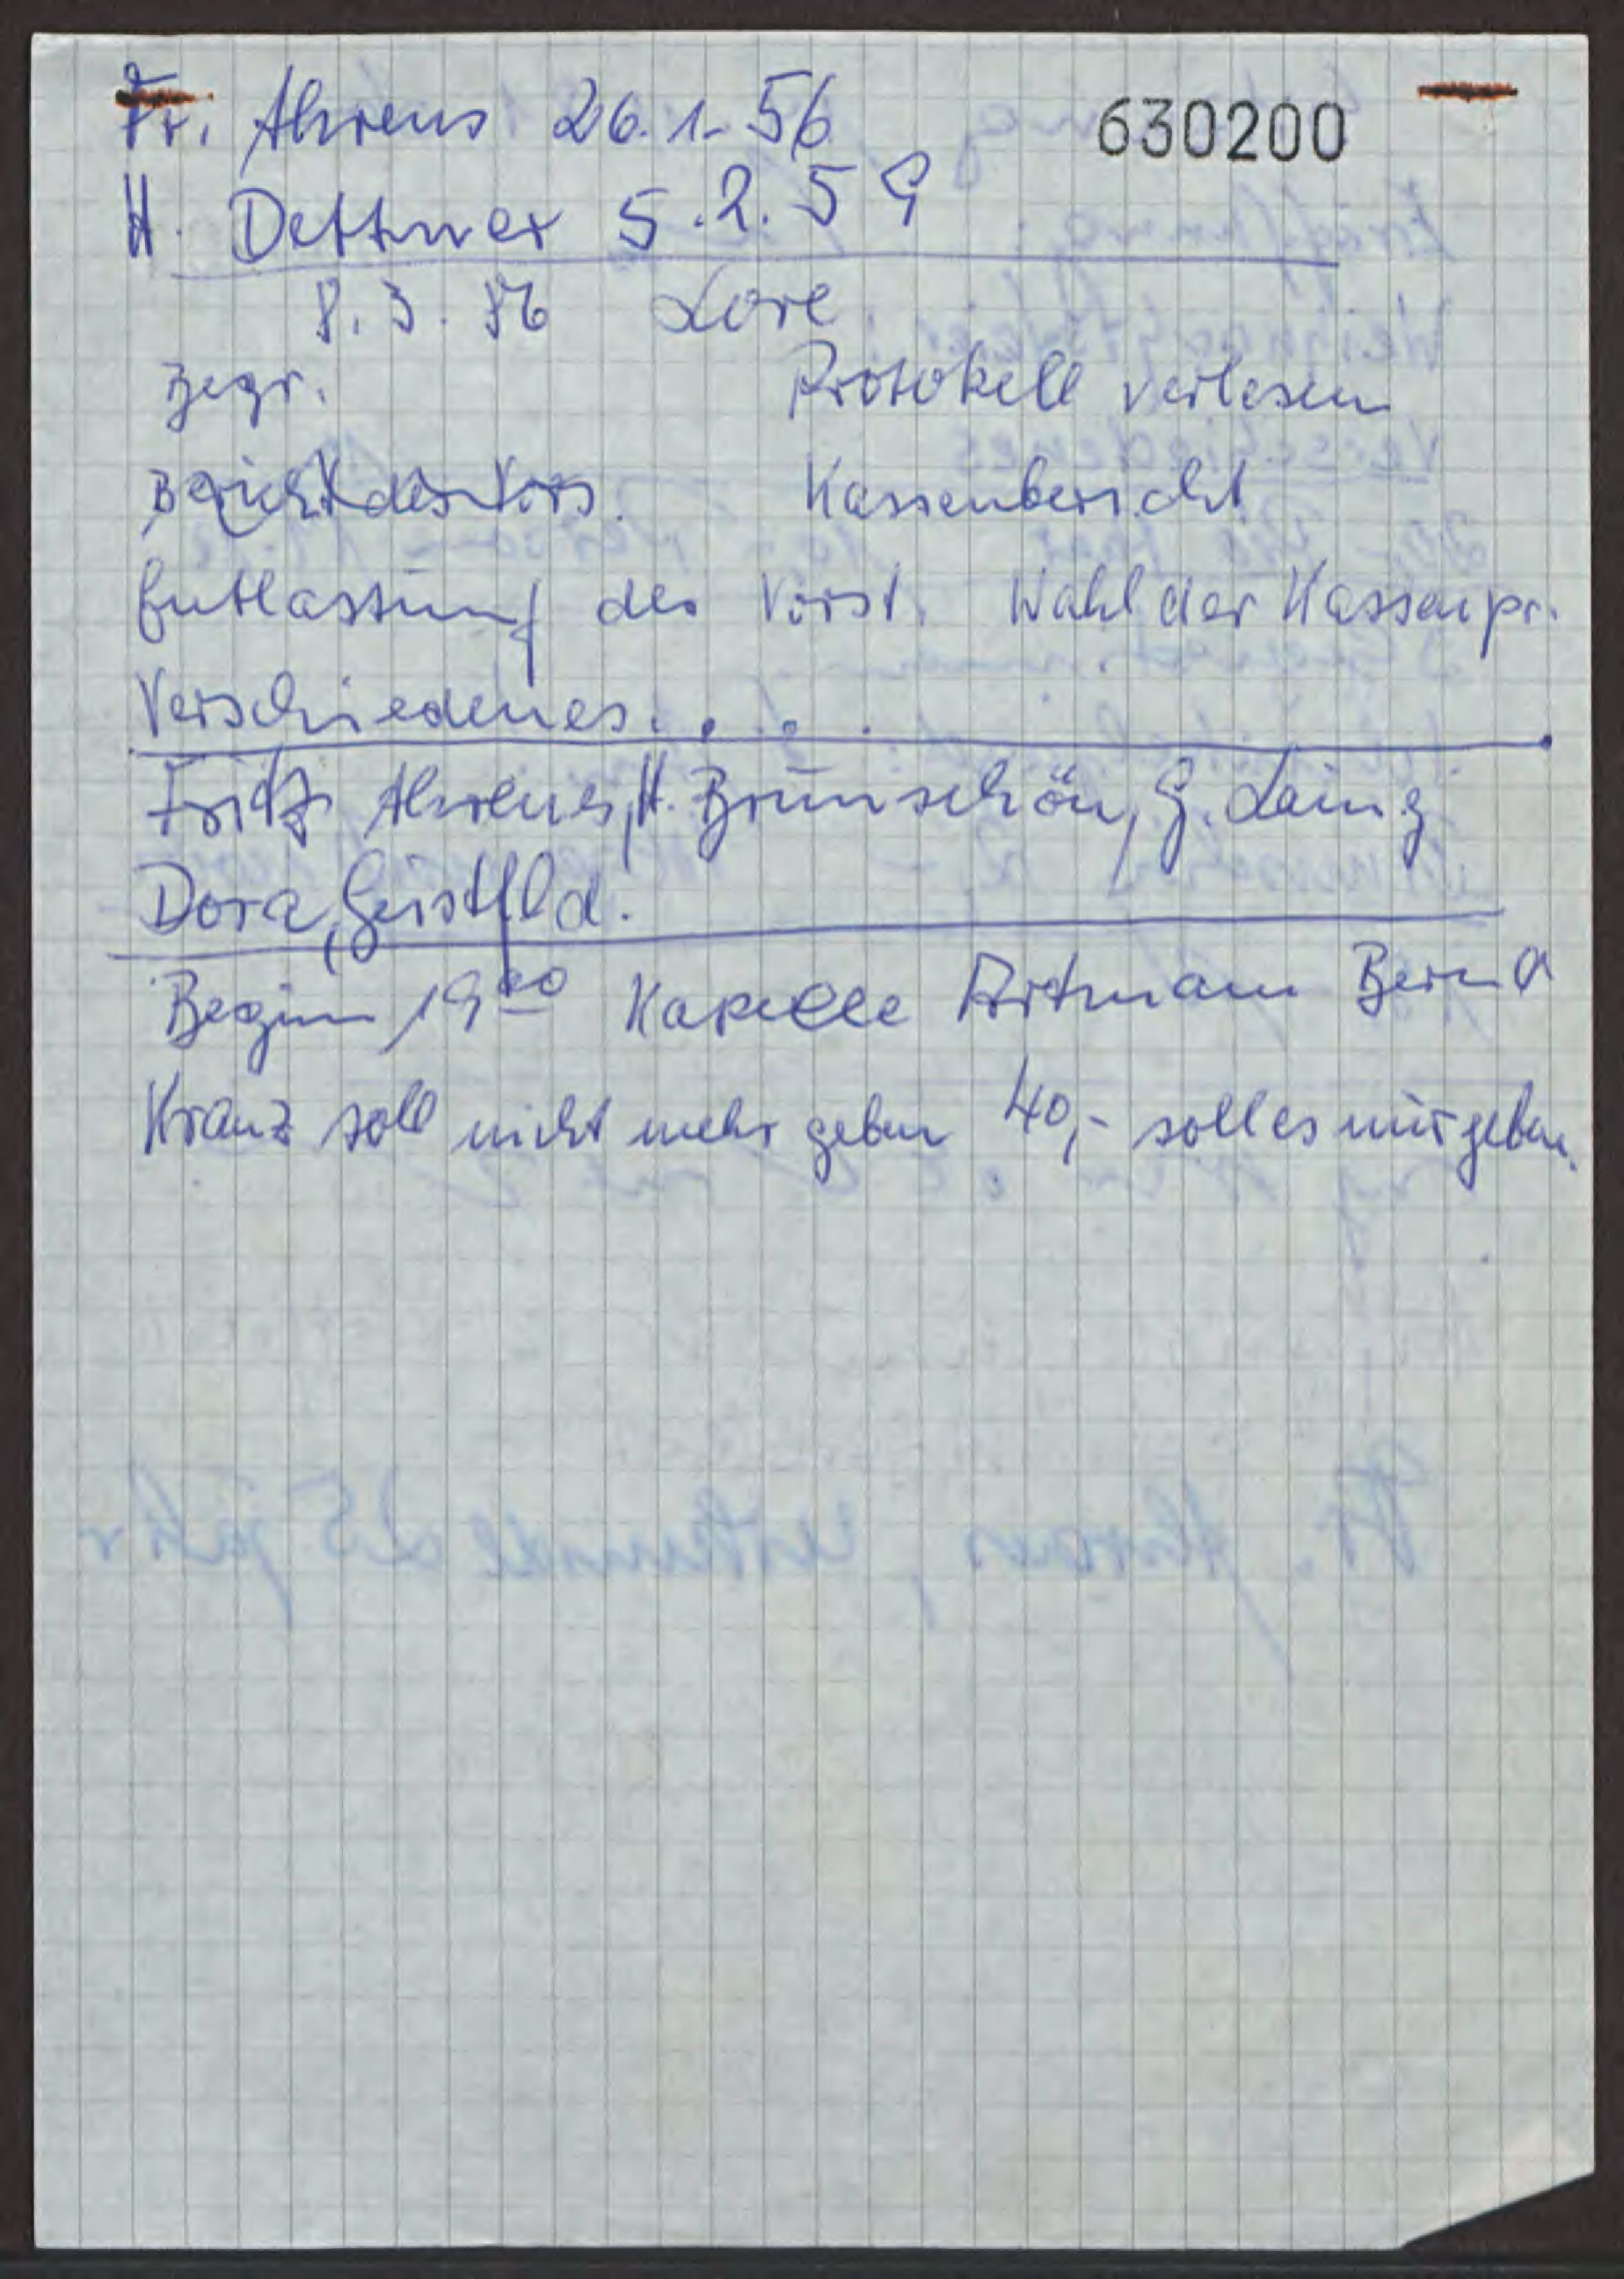 Fr. Ahrens 26.1.56 630200
H. Dettmer 5.2.59
8.3.86 Lore
Begr. Protokoll verlesen
Bericht des Vors. Kassenbericht
Entlastung des Vorst. Wahl der Kassenpr.
Verschiedenes....
Fritz Ahrens, H. Brunschön, G.
Dora, Geistfld.
Beginn 19 Kapelle Artmann Bernd
Kranz soll nicht mehr geben 40,- soll es nur geben.